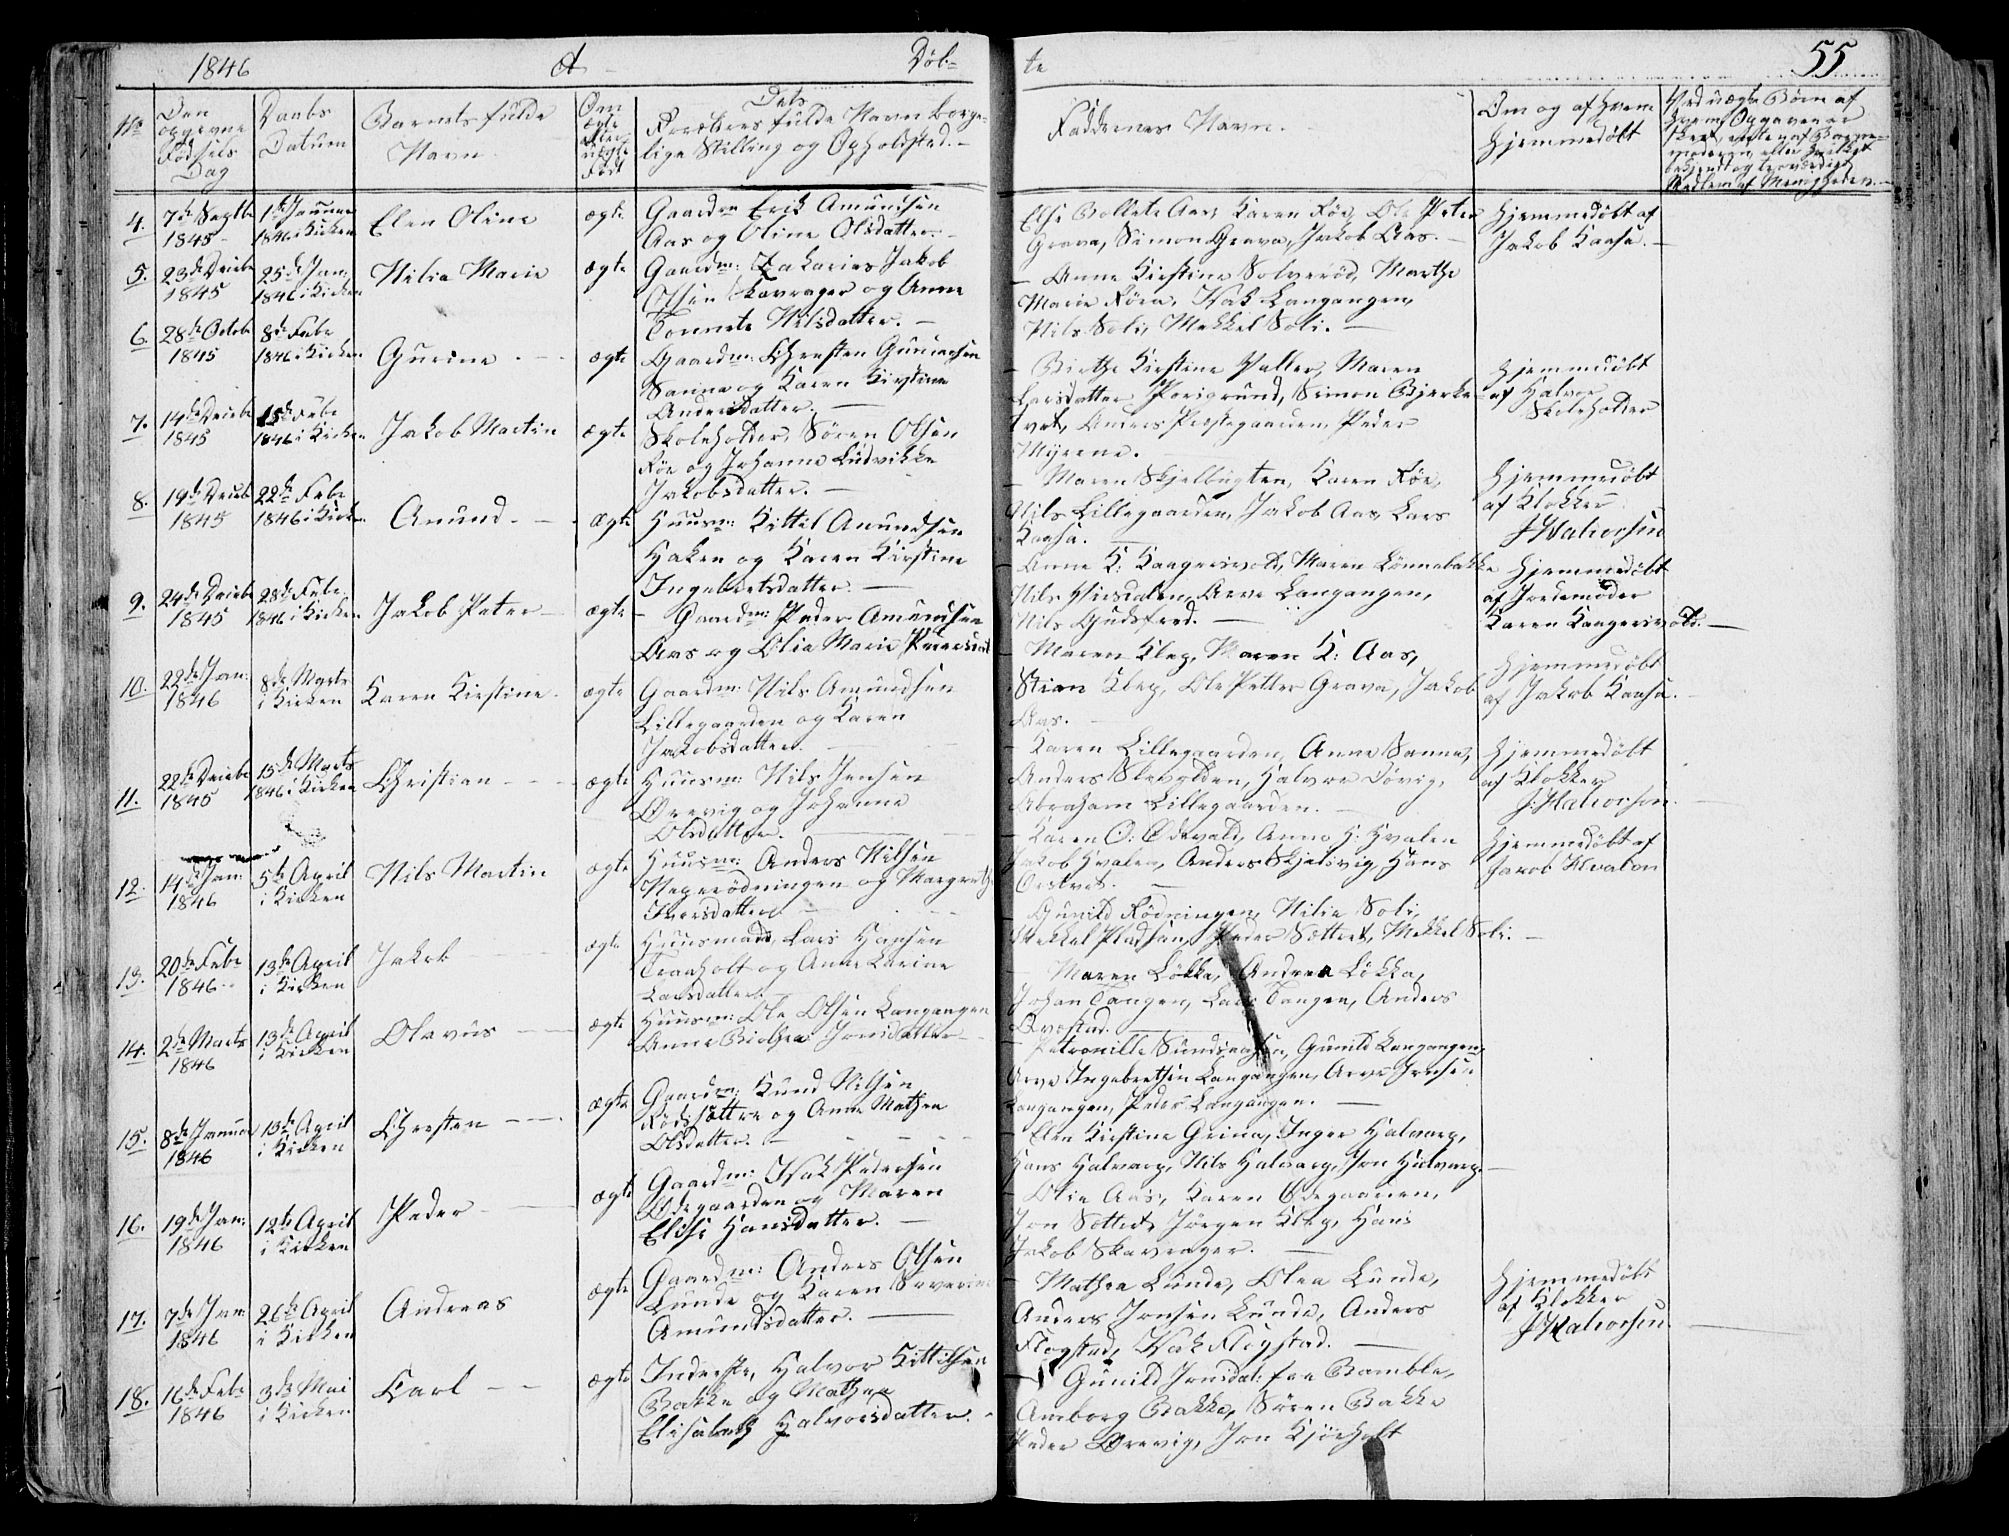 1846 A Døb-
te 55
No
Den opgivne Fødsels Dag
Daabs Datum
Barnets fulde Navn.
Om ægte eller uægte Født
Dets Forældres fulde Navn borgelige Stilling og Opholdsted.-
Faddernes Navn.-
Om og af hvem hjemmedøbt
Ved uægte Børn af hvem Opgaven er skeet, enten af
4. 7de Septbr 1845 1te Januar 1846 i Kirken Elen Oline ægte
Gaardm: Erik Amundsen
Aas og Oline Olsdatter.-
Else Bollete Aas, Karen Röe, Ole Peter
Grava, Simon Grava, Jakob Aas.-
Hjemmedøbt af
Jakob Kaasa.-
5. 23de Decbr 1845 25de Jan: 1846 i Kirken Nilia Marie ægte
Gaardm: Zakarias Jakob
Olsen Skavrager og Anne
Tonnete Nilsdatter.-
Anne Kirstine Solverød, Marthe
Marie Röra, Isak Langangen,
Nils Soli, Mekkel Soli.-
6. 28de Octobr 1845 8de Febr 1846 i Kirken Gurine ægte
Gaardm: Christen Gunnersen
Sanna og Karen Kirstine
Andersdatter.-
Birthe Kirstine Valler, Maren
Larsdatter Porsgrund, Simon Bjerke-
tvet, Anders Prestegaarden, Peder
Myrene.
Hjemmedøbt
af Halvor
Skoleholder
7. 14de Decbr 1845 15de Febr 1846 i Kirken Jakob Martin ægte
Skoleholder Søren Olsen
Röe og Johanne Ludvikke
Jakobsdatter.-
Maren Skjelbugten, Karen Röe,
Nils Lillegaarden, Jakob Aas, Lars
Kaasa.
Hjemmedøbt
af Klokker
J Halvorsen
8. 19de Decbr 1845 22de Febr 1846 i Kirken Anund.- ægte
Huusm: Kittil Anundsen
Haken og Karen Kirstine
Ingebretsdatter.-
Anne K: Kaagersvold, Maren Lönnebakke
Nils Aarsdalen, Arve Langangen,
Nils Gudsfred.-
Hjemmedøbt
af Jordemoder
Karen Kaagersvold.-
9. 24de Decbr 1845 28de Febr 1846 i Kirken Jakob Peter ægte
Gaardm: Peder Amundsen
Aas og Olia Marie Pedersdat
Maren Klep, Maren K: Aas,
Stian Klep, Ole Petter Grava, Jakob
Aas.-
Hjemmedøbt
af Jakob Kaasa.
10. 22de Jan: 1846 8de Marts i Kirken Karen Kirstine. ægte
Gaardm: Nils Amundsen
Lillegaarden og Karen
Jakobsdatter.
Karen Lillegaarden, Anne Sanna,
Anders Skifolden, Halvor Dövig,
Abraham Lillegaarden.
Hjemmedøbt
af Klokker
J. Halvorsen.
11. 22de Decbr 1845 15de Marts 1846 i Kirken Christian ægte
Huusm: Nils Jensen
Ørevig og Johanne
Olsdatter.
Karen O: Ødevald, Anne H: Hvalen
Jakob Hvalen, Anders Skjelsvig, Hans
Orstvet.
Hjemmedøbt af
Jacob Hvalen
12. 14de Jan: 1846 5te April i Kirken Nils Martin ægte
Huusm: Anders Nilsen
Vegerödningen og Margrethe
Iversdatter
Gunild Rödningen, Nilia Soli,
Mekkel Pladsen, Peder Sottvet, Mekkel Soli.-
13. 20de Febr 1846 13de April i Kirken Jakob ægte
Huusmand, Lars Hansen
Tranholt og Anne Karine
Larsdatter.
Maren Løkka, Andrea Løkka,
Johan Tangen, Lars Tangen, Anders
Ørstad.
14. 2de Marts 1846 13de April i Kirken Olavus ægte
Huusm: Ole Olsen Langangen
Anne Birthea Jonsdatter
Petronille Sundsaasen, Gunild Langangen,
Arve Ingebretsen Langangen, Arve Jensen
Langangen, Peder Langangen.-
15. 8de Januar 1846 13de April i Kirken Christen ægte
Gaardm: Knud Nilsen
Rödssættre og Anne Mathea
Olsdatter.
Elen Kirstine Grina, Inger Halvarp,
Hans Halvarp, Nils Halvarp, Jon Halvarp.-
16. 19de Jan: 1846 12te April i Kirken Peder ægte
Gaardm: Isak Pedersen
Ødegaarden og Maren
Elise Hansdatter.-
Olia Aas, Karen Ødegaarden,
Jon Sottvet, Jörgen Klep, Hans
Jakob Skavrager.
17. 7de Jan: 1846 26de April i Kirken Andreas ægte
Gaardm: Anders Olsen
Lunde og Karen Severine
Amundsdatter.
Mathea Lunde, Olea Lunde,
Anders Jonsen Lunde, Anders
Flogstad, Isak Flogstad.
Hjemmedøbt
af Klokker
J Halvorsen.
18. 16de Febr 1846 3de Mai i Kirken Carl ægte
Inderste, Halvor Kittilsen
Bakke og Mathea
Elisabeth Halvorsdatter.
Gunild Jonsdat: fra Bamble,
Amborg Bakke, Søren Bakke
Peder Ørevig, Jon Kjörholt